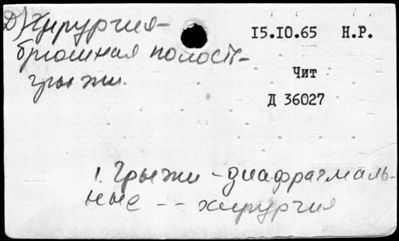 Д) Хирургия-
брюшная полость-
грыжи.
15.10.65 Н.Р.
Чит
Д 36027
1. Грыжи - диафрагмаль-
ные -- хирургия